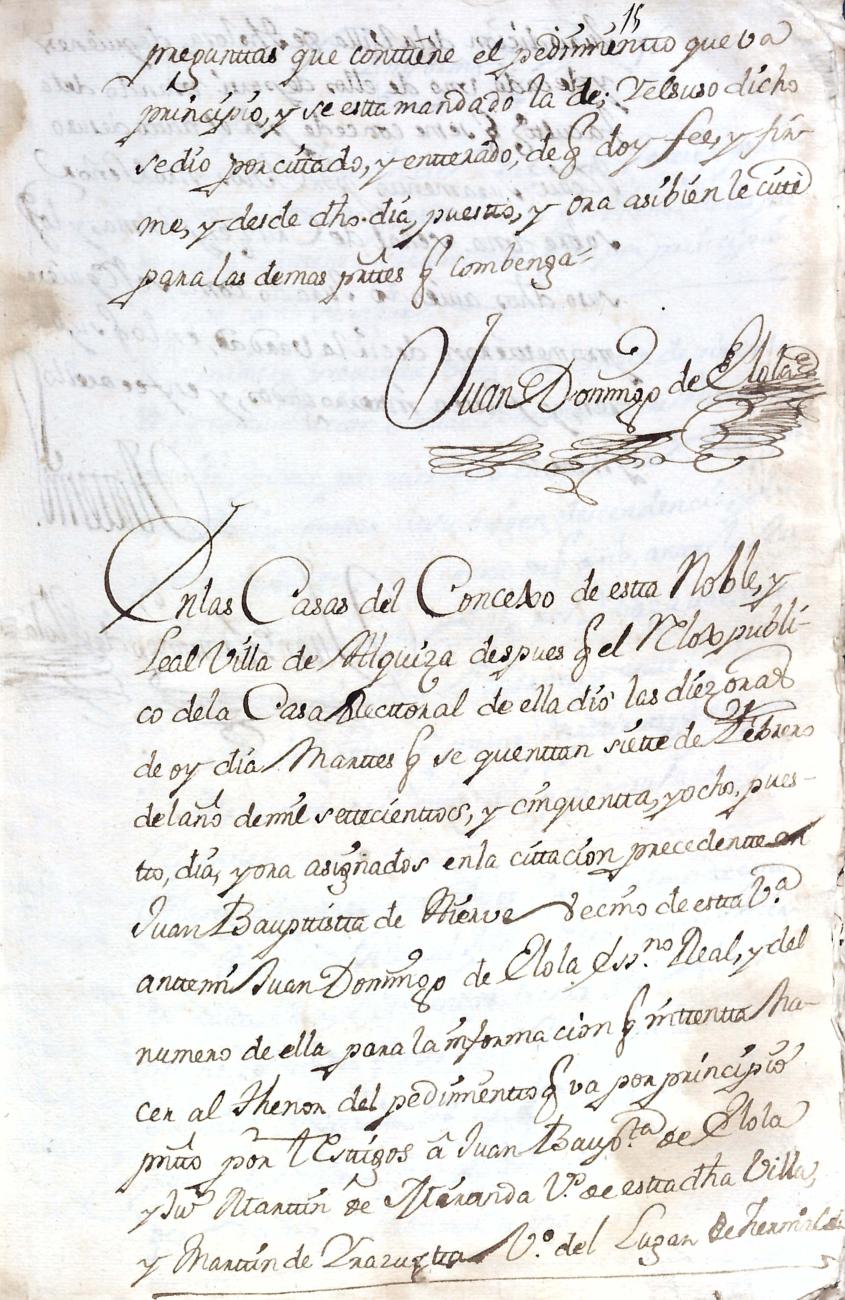 15
preguntas que conttiene el pedimientto que va
principio, y se estta mandado la de; Yelsuso dicho
sedio por cittado, y entterado, de q doy fee, y fir-
me, y desde dho. dia, puestto, y ora asibien le citte
para las demas prttes q combenga=
Juan Domingo de Elola
Enlas Casas del Concexo de estta Noble, y
Leal Villa de Alquiza despues q el Relox publi-
co dela Casa Recttoral de ella dio las diez oras
de oy dia Marttes q se quenttan siette de Febrero
del año demil settecienttos, y cinquentta, yocho, pues-
tto, dia, yora asignados enla cittacion precedentte
Juan Bauptistta de Veciño de estta V.a
anttemi Juan Domingo de Elola Ess.no Real, y del
numero de ella para la informacion q inttentta ha-
cer al thenor del pedimientto q va por principio
pntto por ttesttigos â Juan Baup.ta de Elola
y Ju.o Marttin de Miranda V.o de estta dha Villa,
y Marttin de Yrazustta V.o del Lugar de